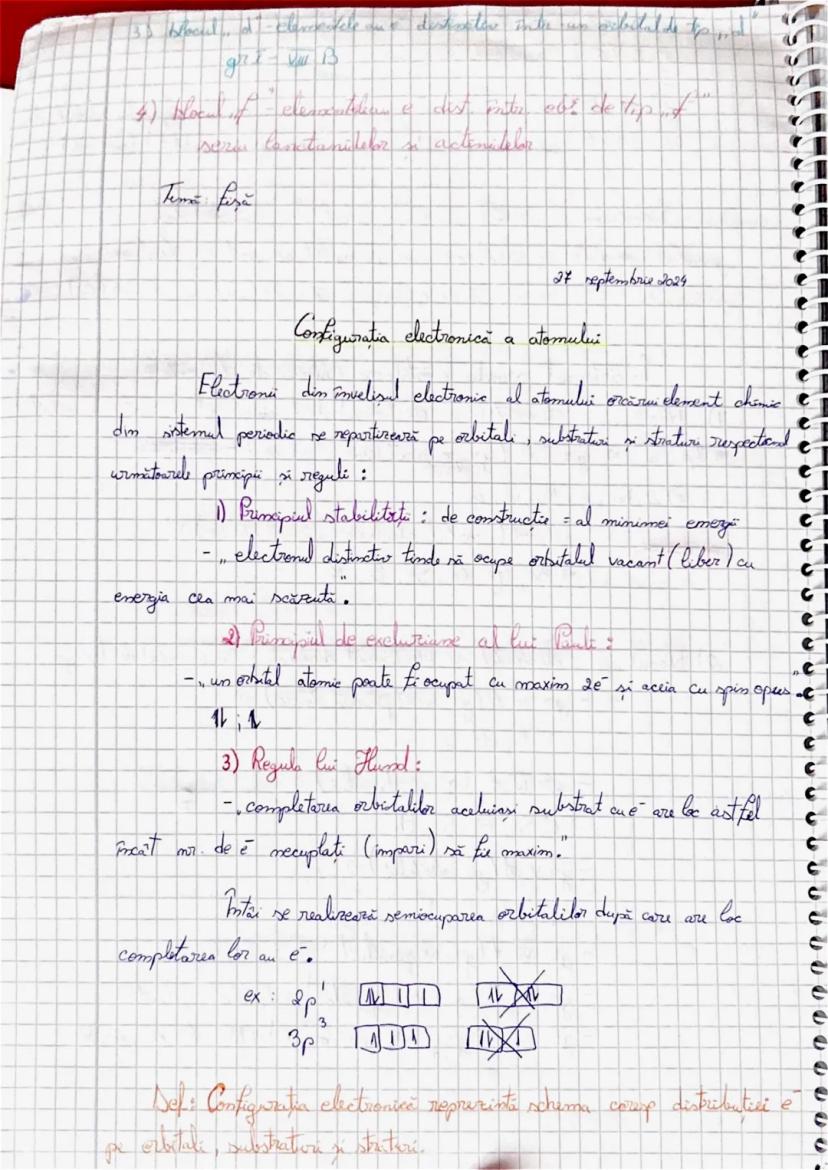 3) blocul „d" - elementele au e⁻ distinctiv într-un orbital de tip „d"
gr I - VIII B
4) blocul „f" - elementele au e⁻ dist. într-un de tip „f"
seria lantanidelor si actinidelor
Temă: fișă
27 septembrie 2024
Configurația electronică a atomului
Electronii din învelișul electronic al atomului oricărui element chimic
din sistemul periodic se repartizează pe orbitali, substraturi și straturi respectând
următoarele principii și reguli:
1) Principiul stabilității: de construcție = al minimei energii
- „electronul distinctiv tinde să ocupe orbitalul vacant (liber) cu
energia cea mai scăzută".
2) Principiul de excluziune al lui Pauli:
- „un orbital atomic poate fi ocupat cu maxim 2e⁻ și aceia cu spin opus".
⥮ ; ⥮
3) Regula lui Hund:
- „completarea orbitalilor aceluiași substrat cu e⁻ are loc astfel
încât nr. de e⁻ necuplați (impari) să fie maxim."
Întâi se realizează semiocuparea orbitalilor după care are loc
completarea lor cu e⁻.
ex: 2p¹ ⥮ 1 1 ⥮ ⥮
3p³ 1 1 1 ⥮ 1
Def: Configurația electronică reprezintă schema coresp distribuției e⁻
pe orbitali, substraturi și straturi.